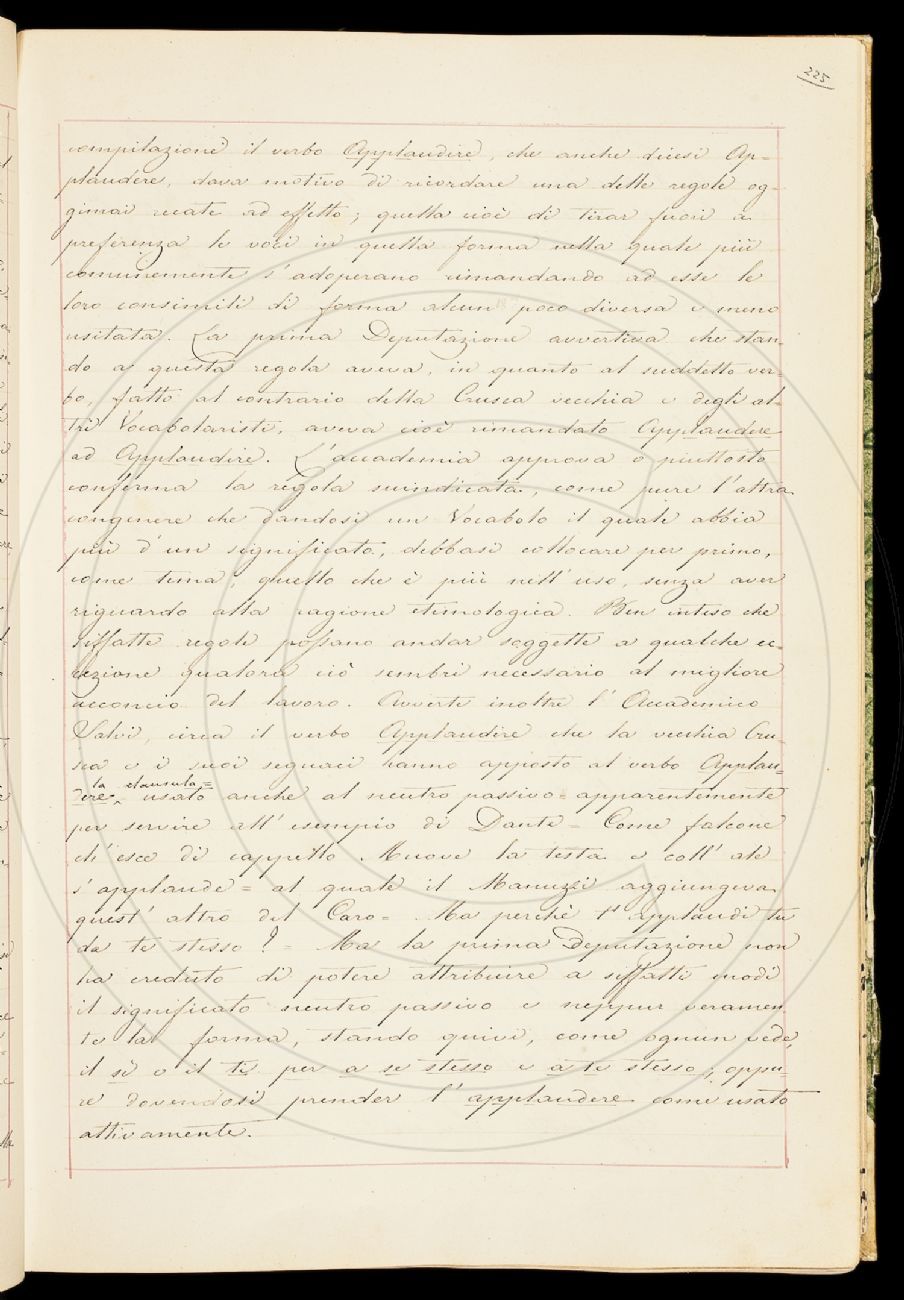 225
compilazione il verbo Applaudire, che anche dicesi Ap-
plaudere, dava motivo di ricordare una delle regole og-
gimai recate ad effetto; quella cioè di tirar fuori a
preferenza le voci in quella forma nella quale più
comunemente s'adoperano rimandando ad esse le
loro consimili di forma alcun poco diversa e meno
usitata. La prima Deputazione avvertiva che stan-
do a questa regola aveva, in quanto al suddetto ver-
bo, fatto al contrario della Crusca vecchia e degli al-
tri Vocabolaristi, aveva cioè rimandato Applaudere
ad Applaudire. L'accademia approva o piuttosto
conferma la regola suindicata, come pure l'altra
congenere che dandosi un Vocabolo il quale abbia
più d'un significato, debbasi collocare per primo,
come tema, quello che è più nell'uso, senza aver
riguardo alla ragione etimologica. Ben inteso che
siffatte regole possano andar soggette a qualche ec-
cezione qualora ciò sembri necessario al migliore
acconcio del lavoro. Avverte inoltre l'Accademico
Salvi, circa il verbo Applaudire che la vecchia Cru-
sca e i suoi seguaci hanno apposto al verbo Applau-
la clausula =
dere usato anche al neutro passivo = apparentemente
per servire all'esempio di Dante = Come falcone
ch'esce di cappello Muove la testa e coll'ale
s'applaude = al quale il Manuzzi aggiungeva
quest'altro del Caro = Ma perchè t'applaudi tu
da te stesso? = Ma la prima Deputazione non
ha creduto di potere attribuire a siffatti modi
il significato neutro passivo e neppur veramen
te la forma, stando quivi, come ognun vede,
il sè o il te per a se stesso e a te stesso; oppu-
re dovendosi prender l'applaudere come usato
attivamente.